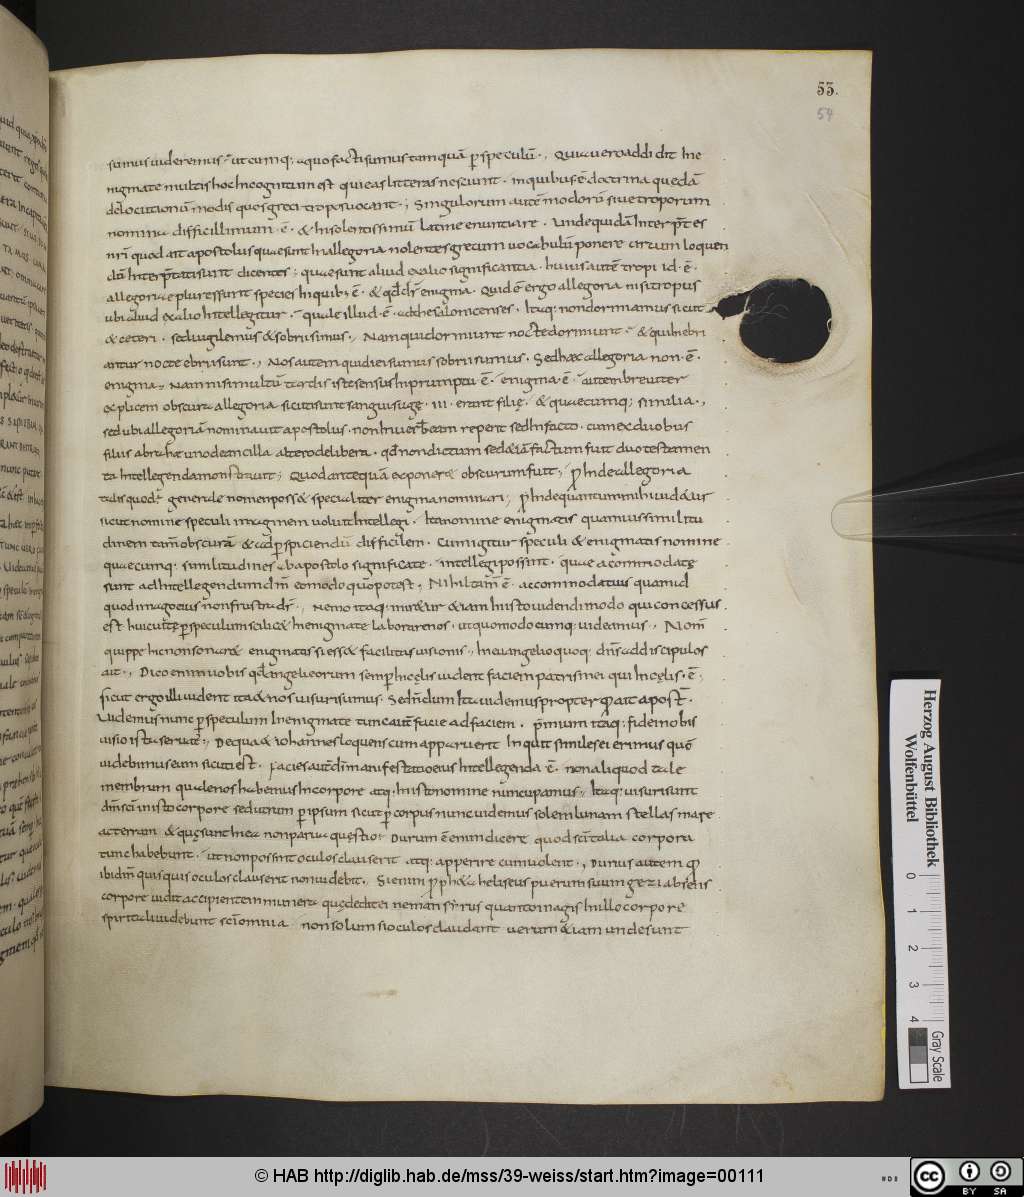 53.
54
simus uideremus · ut cumq; aquo facti sumus tamquā p̄ speculū ·, Quia uero addidit Ine
nigmate multis hoc Incognitum est qui eas litteras nesciunt · in quibus ē doctrina quedā
de locutionū modis quos greci tropos uocant ·, Singulorum autē modorū siue troporum
nomina difficillimum · ē · & Insolentissimū latine enuntiare · Unde quidā Interp̄tes
nr̄i quod ait apostolus quae sunt In allegoria nolentes grecum uocabulū ponere circum loquen
do Interp̄tati sunt dicentes ; quae sunt aliud ex alio significantia · huius autē tropi id · ē ·
allegoriae plures sunt species In quib; ē · & qđ dr̄ enigma · Quid ē ergo allegoria nisi tropus
ubi aliud ex alio Intellegitur · quale illud · ē · ad thesalonicenses · Itaq; non dormiamus sicut
& ceteri · sed uigilemus & sobrii simus ·, Nam qui dormiunt nocte dormiunt · & qui inebri
antur nocte ebrii sunt ·, Nos autem qui diei sumus sobrii simus · Sed haec allegoria non · ē ·
enigma ·, Nam nisi multū tardis iste sensus In promptu ē · enigma · ē · autem breuiter
explicem obscura allegoria sicuti sunt sanguisugę · III · erant filię · & quaecumq; similia ·,
sed ubi allegoriam nominauit apostolus · non In uerbis eam reperit sed In facto · cum ec duobus
filiis abrahę uno de ancilla altero de libera · qđ non dictum sed &iā factum fuit duo testamen
ta Intellegenda monstrauit ·, Quod antequā exponer& obscurum fuit ·, p̄Inde allegoria
talis quod ē generale nomen poss& specialiter enigma nominari ·, p̄Inde quantum mihi uid&ur
sicut nomine speculi imaginem uoluit Intellegi · Ita nomine enigmatis quamuis similitu
dinem tam̄ obscurā & ad p̄spiciendū difficilem · Cum igitur speculi & enigmatis nomine
quaecumq; similitudines ab apostolo significatę · intellegi possint · quae accommodatę
sunt ad Intellegendum dm̄ eo modo quo potest · Nihil tam̄ ē · accommodatius quam id
quod imago eius non frustra dr̄ ·, Nemo itaq; mir&ur &iam In isto uidendi modo qui concessus
est huic uitę p̄ speculum scilic& In enigmate laborare nos · ut quomodocumq; uideamus ·, Nom̄
quippe hic non sonar& enigmatis si ess& facilitas uisionis ·, In euangelio quoq; dn̄s ad discipulos
ait ·, Dico enim uobis qđ angeli eorum semp̄ In cęlis uident faciem patris mei qui In cęlis · ē ;
sicut ergo illi uident ita & nos uisuri sumus · Sed nondum Ita uidemus propter quod ait apost̄ ·
Uidemus nunc p̄ speculum In enigmate tunc autē facie ad faciem · p̄mium itaq; fidei nobis
uisio ista seruatē ·, De qua & Iohannes loquens cum apparuerit Inquit similes ei erimus quō
uidebimus eum sicuti est · Facies autē dī manifestatio eius Intellegenda · ē · non aliquod tale
membrum quale nos habemus In corpore atq; In isto nomine nuncupamus ·, Itaq; uisuri sunt
dm̄ sc̄i in isto corpore sed utrum p̄ ipsum sicut p̄ corpus nunc uidemus solem lunam stellas mare
ac terram & quę sunt In ea non parua questio · Durum ē enim dicere quod sc̄i talia corpora
tunc habebunt · ut non possint oculos clauserit atq; apperire cum uolent ·, Durius autem quod
ibidm̄ quisquis oculos clauserit non uidebit ·, Si enim p̄ph&a heliseus puerum suum gezi absens
corpore uidit accipientem munera quę dedit ei neman syrus quanto magis In illo corpore
spiritali uidebunt sc̄i omnia · non solum si oculos claudant uerum &iam unde sunt
Herzog August Bibliothek
Wolfenbüttel
0 1 2 3 4
Gray Scale
© HAB http://diglib.hab.de/mss/39-weiss/start.htm?image=00111
cc BY SA